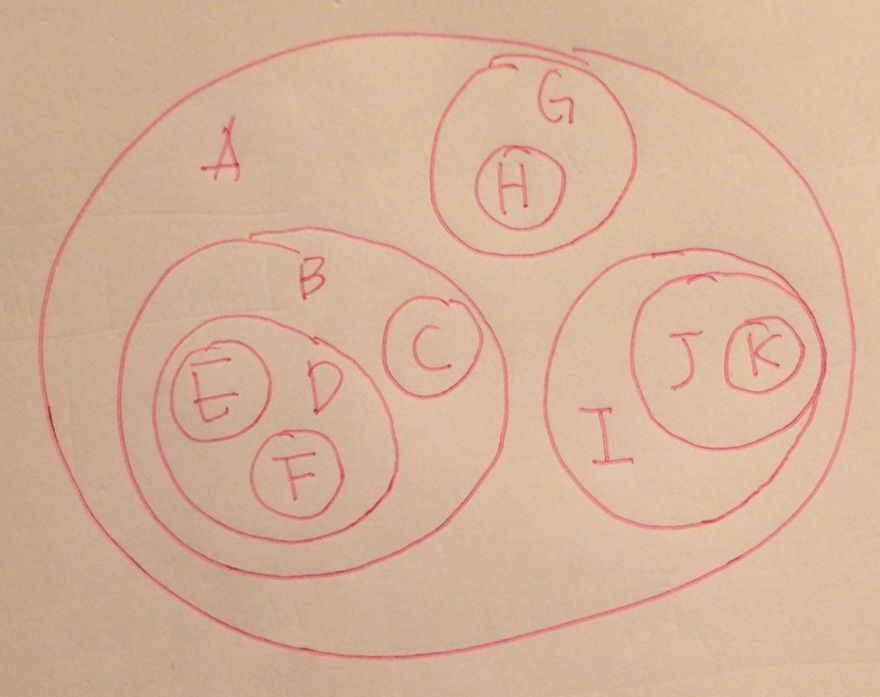 A
G
H
B
C
E
D
F
I
J
K